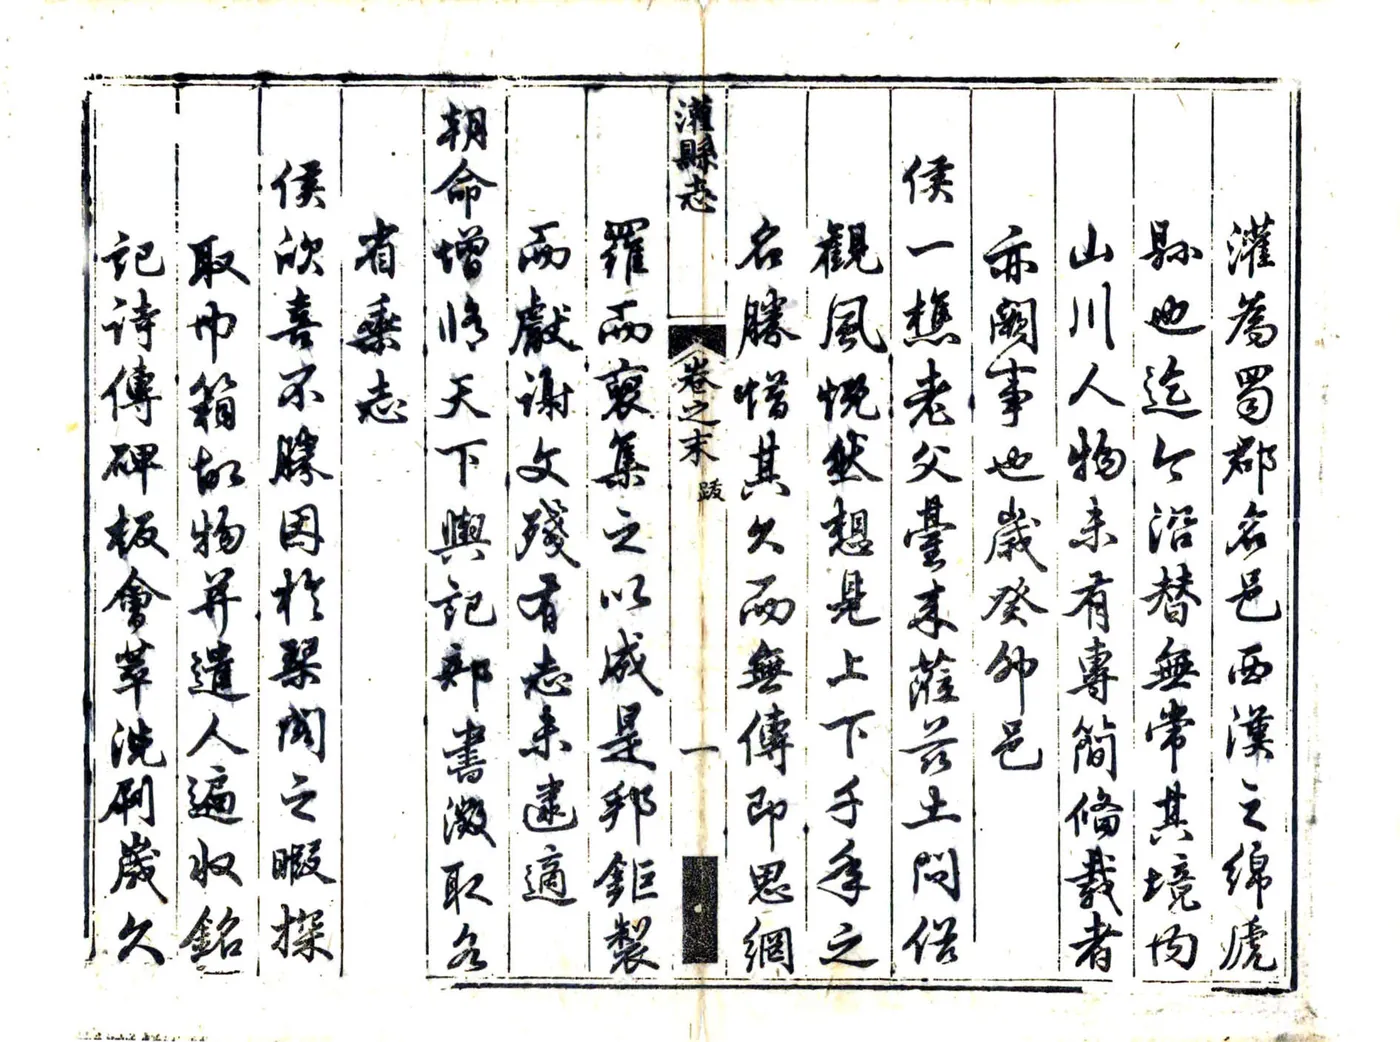 灌為蜀郡名邑西漢之綿虒
縣也迄今沿替無常其境內
山川人物未有專簡備載者
亦闕事也歲癸卯邑
侯一樵老父臺來蒞茲土問俗
觀風慨然想見上下千年之
名勝惜其久而無傳即思網
灌縣志
卷之末
跋
一
羅而裒集之以成是邦鉅製
而獻謝文殘有志未逮適
朝命增修天下輿記部書徵取各
省乘志
侯欣喜不勝因於琴閣之暇探
取巾箱故物并遣人遍收銘
記詩傳碑板會萃洗刷歲久